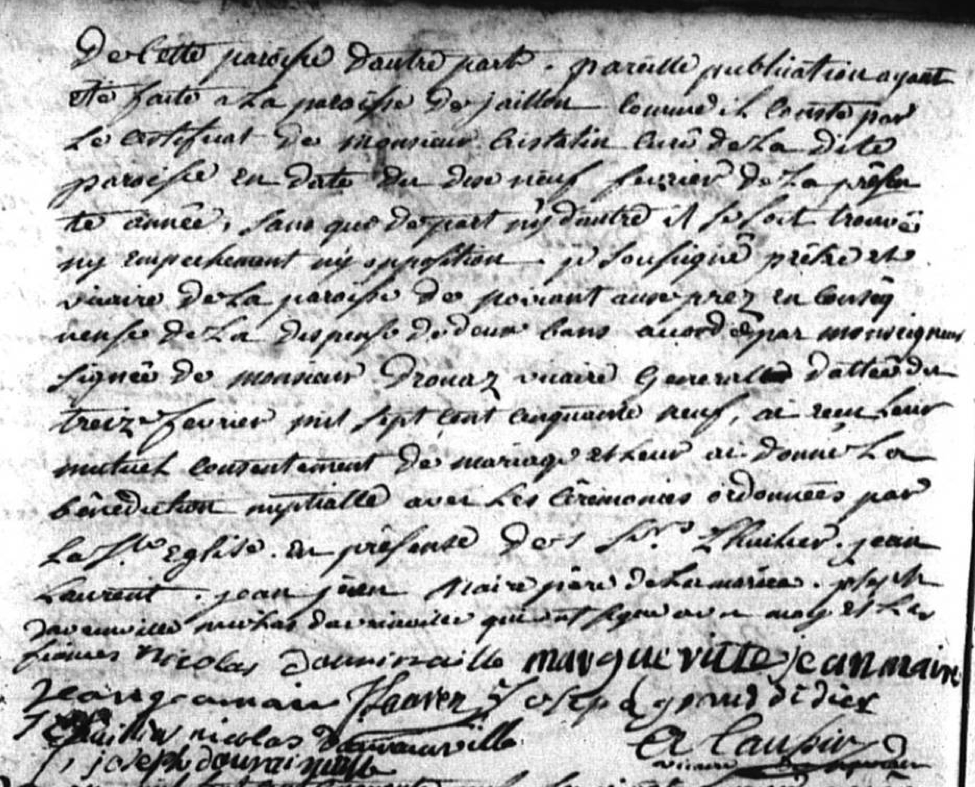 de Cette paroisse dautre part. pareille publication ayant
été faite a La paroisse de jaillon comme il Conste par
Le certificat de monsieur Cristalin Curé de La dite
paroisse en date du dixe neuf fevrier de La présen
te année, sans que de part ny dautre il se soit trouvé
ny empechement ny opposition. je soussigné prêtre et
vicaire de La paroisse de en conseq
uense de La dispense de deux bans accordé par monseigneur
signée de monsieur Drouaz vicaire General dattée du
treize fevrier mil sept cent cinquante neuf, ai recu Leur
mutuel consentement de mariage et Leur ai donné La
bénédiction nuptialle avec Les Cérémonies ordonnées par
La Ste Eglise. en présense des Sr. Lhuilier. jean
Laurent. jean maire père de La mariée. joseph
nicolas qui ont signé avec moy et Les
nicolas jean maire
jean germain joseph grand didier
nicolas
joseph
vicaire